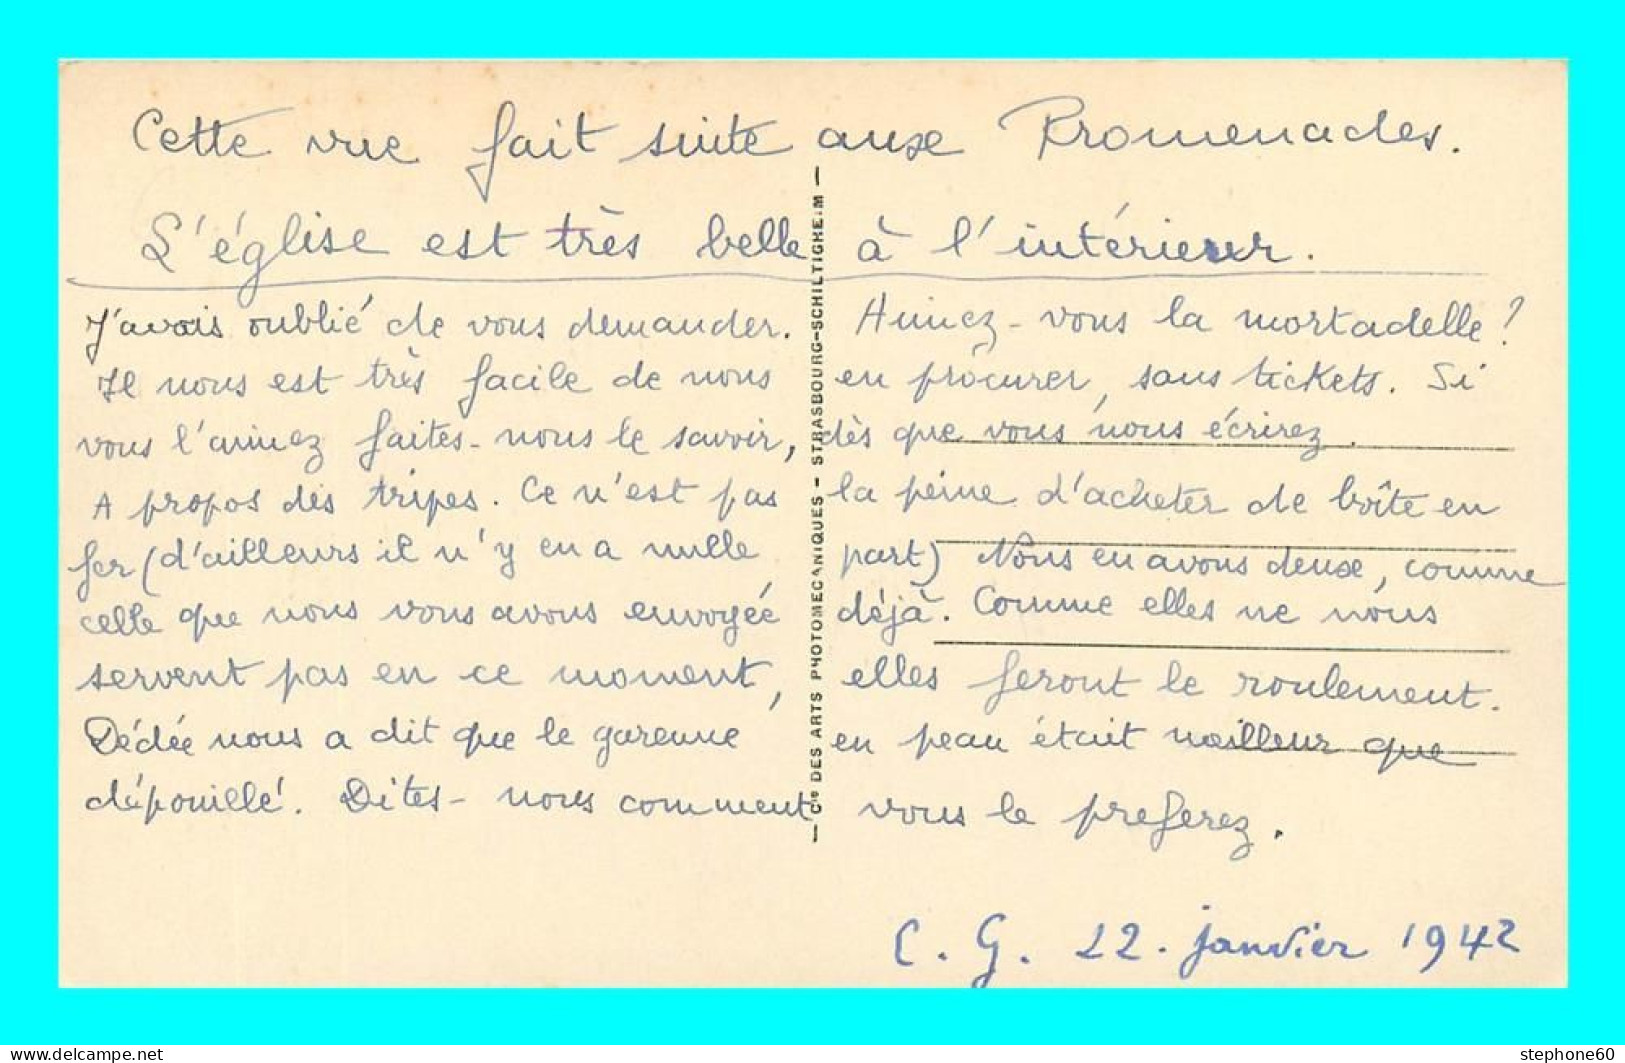 Cette vue fait suite aux Promenades.
L'église est très belle à l'intérieur.
J'avais oublié de vous demander. Aimez-vous la mortadelle?
Il nous est très facile de nous en procurer, sans tickets. Si
vous l'aimez faites-nous le savoir, dès que vous nous écrirez.
A propos des tripes. Ce n'est pas la peine d'acheter de boîte en
fer (d'ailleurs il n'y en a nulle part) Nous en avons deux, comme
celle que nous vous avons envoyée déjà. Comme elles ne nous
servent pas en ce moment, elles feront le roulement.
Dédée nous a dit que le garenne en peau était meilleur que
dépouillé. Dites-nous comment vous le preferez.
C. G. 22. janvier 1942
— Cie DES ARTS PHOTOMECANIQUES - STRASBOURG-SCHILTIGHEIM —
delcampe.net
stephone60